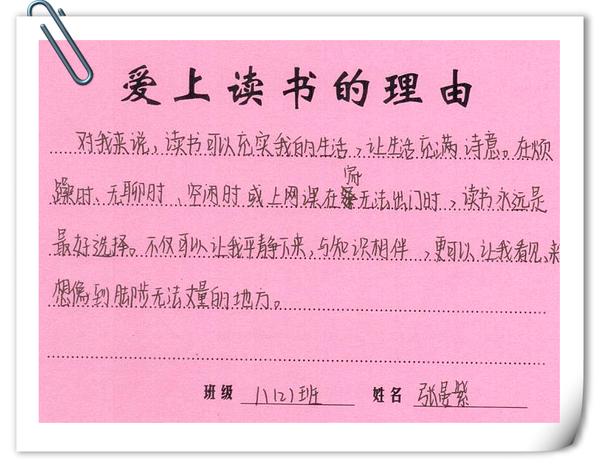 爱上读书的理由
对我来说，读书可以充实我的生活，让生活充满诗意。在烦
躁时、无聊时、空闲时或上网课在家无法出门时，读书永远是
最好选择。不仅可以让我平静下来，与知识相伴，更可以让我看见、
想像到脚步无法丈量的地方。
班级 八(2)班 姓名 张